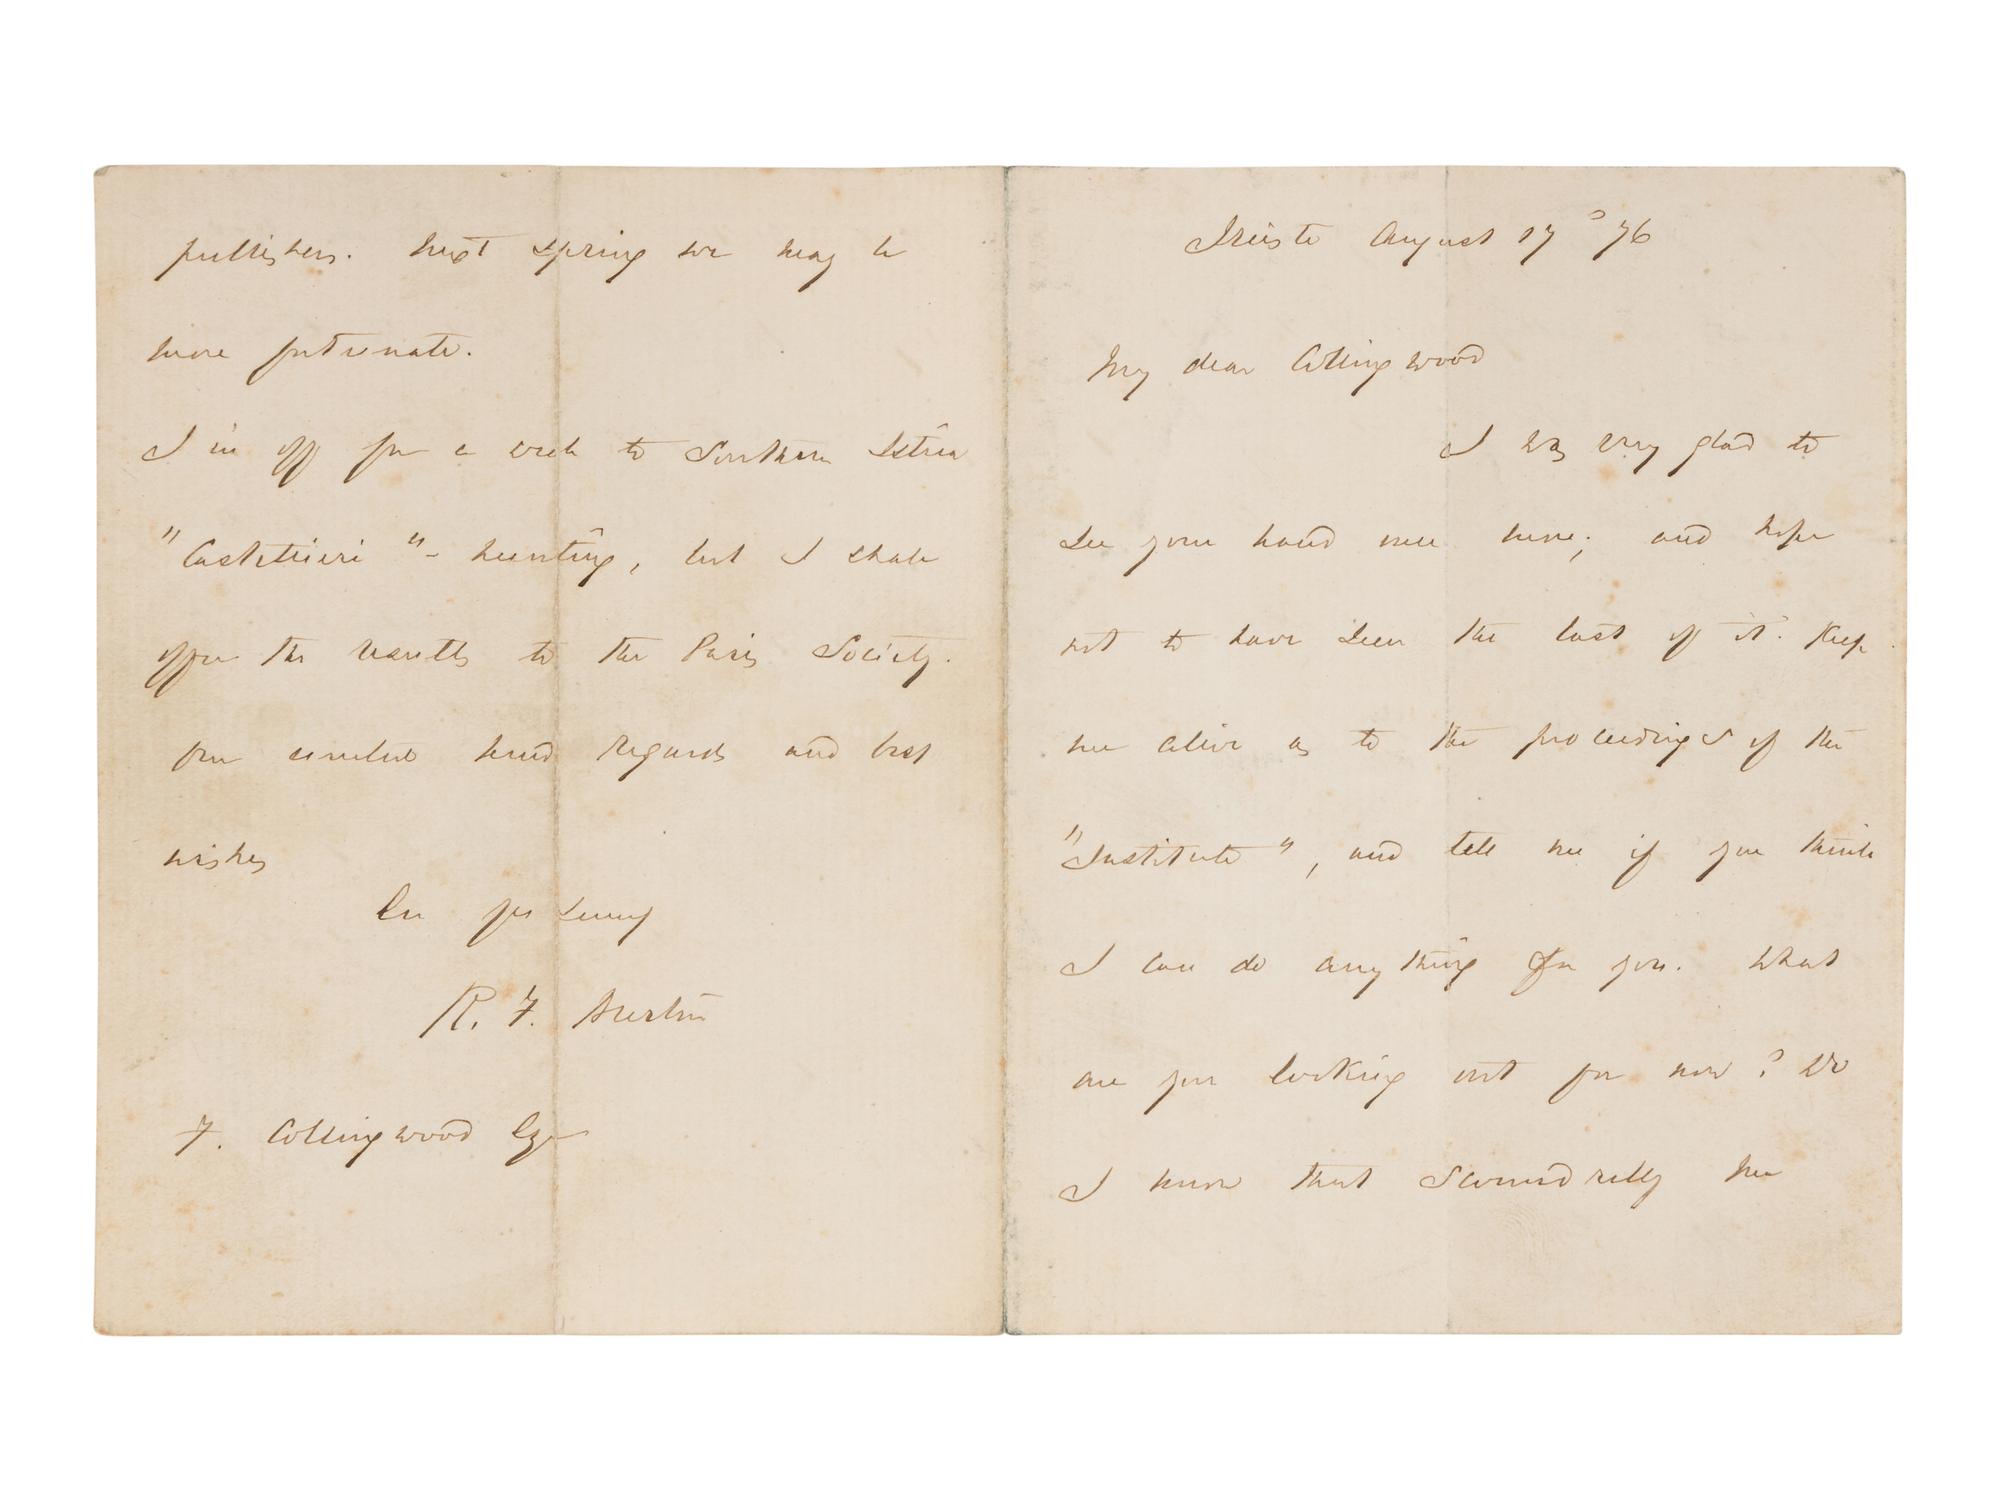 Trieste August 17 '76
My dear Collingwood
I was very glad to
see your hand once more; and hope
not to have seen the last of it. Keep
me alive as to the proceedings of the
"Institute", and tell me if you think
I can do anything for you. What
are you looking out for now? Do
I know that scoundrelly
publishers. Next spring we may be
more fortunate.
I'm off for a week to Southern Istria
"Castellieri"-hunting, but I shall
offer the results to the Paris Society.
Our united kind regards and best
wishes
Ev yrs
R. F. Burton
F. Collingwood Esqr